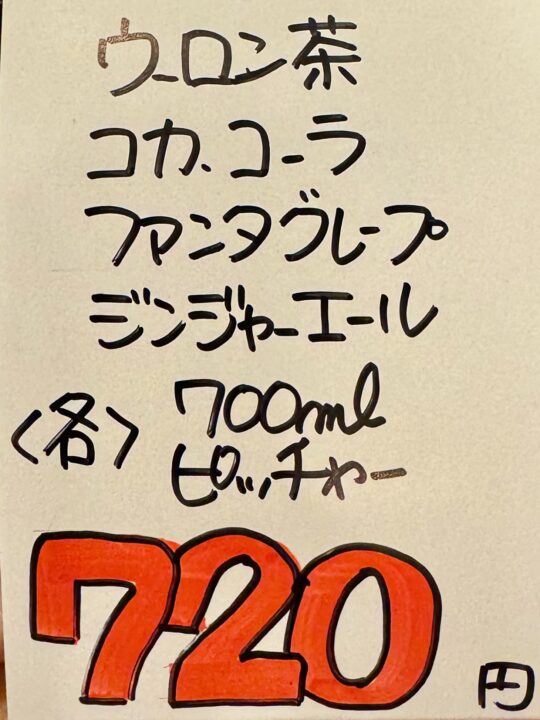 ウーロン茶
コカ・コーラ
ファンタグレープ
ジンジャーエール
<各> 700ml
ピッチャー
720円